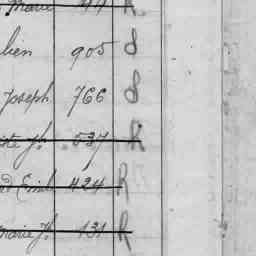 Marie 44 R
bien 905 d
Joseph 766 d
iste Jh. 537 R
Emile 424 R
Marie Jh 131 R